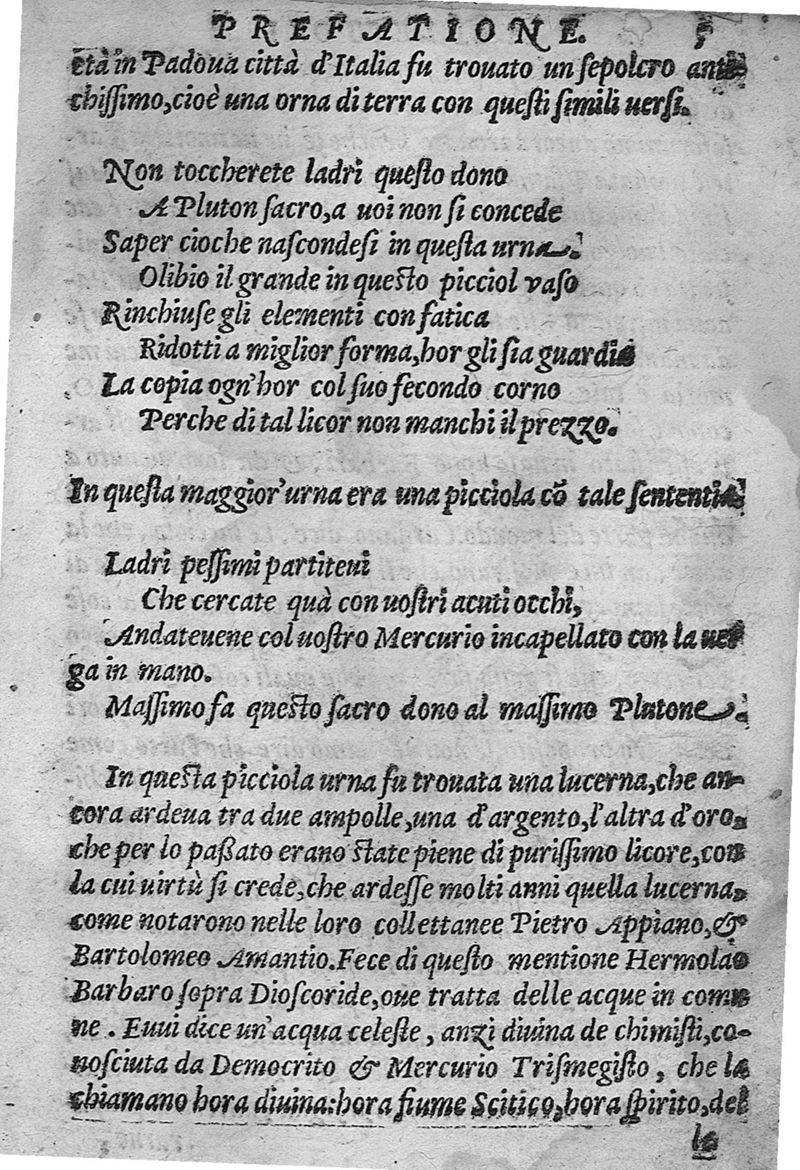 PREFATIONE. 5
età in Padoua città d'Italia fu trouato un sepolcro anti
chissimo, cioè una orna di terra con questi simili uersi.
Non toccherete ladri questo dono
A Pluton sacro, a uoi non si concede
Saper cioche nascondesi in questa urna.
Olibio il grande in questo picciol vaso
Rinchiuse gli elementi con fatica
Ridotti a miglior forma, hor gli sia guardia
La copia ogn'hor col suo fecondo corno
Perche di tal licor non manchi il prezzo.
In questa maggior'urna era una picciola cō tale sententia
Ladri pessimi partiteui
Che cercate quà con uostri acuti occhi,
Andateuene col uostro Mercurio incapellato con la uer
ga in mano.
Massimo fa questo sacro dono al massimo Plutone.
In questa picciola urna fu trouata una lucerna, che an-
cora ardeua tra due ampolle, una d'argento, l'altra d'oro,
che per lo paßato erano state piene di purissimo licore, con
la cui uirtù si crede, che ardesse molti anni quella lucerna,
come notarono nelle loro collettanee Pietro Appiano, &
Bartolomeo Amantio. Fece di questo mentione Hermolao
Barbaro sopra Dioscoride, oue tratta delle acque in comu
ne. Euui dice un'acqua celeste, anzi diuina de chimisti, co-
nosciuta da Democrito & Mercurio Trismegisto, che la
chiamano hora diuina: hora fiume Scitico, hora spirito, del
la